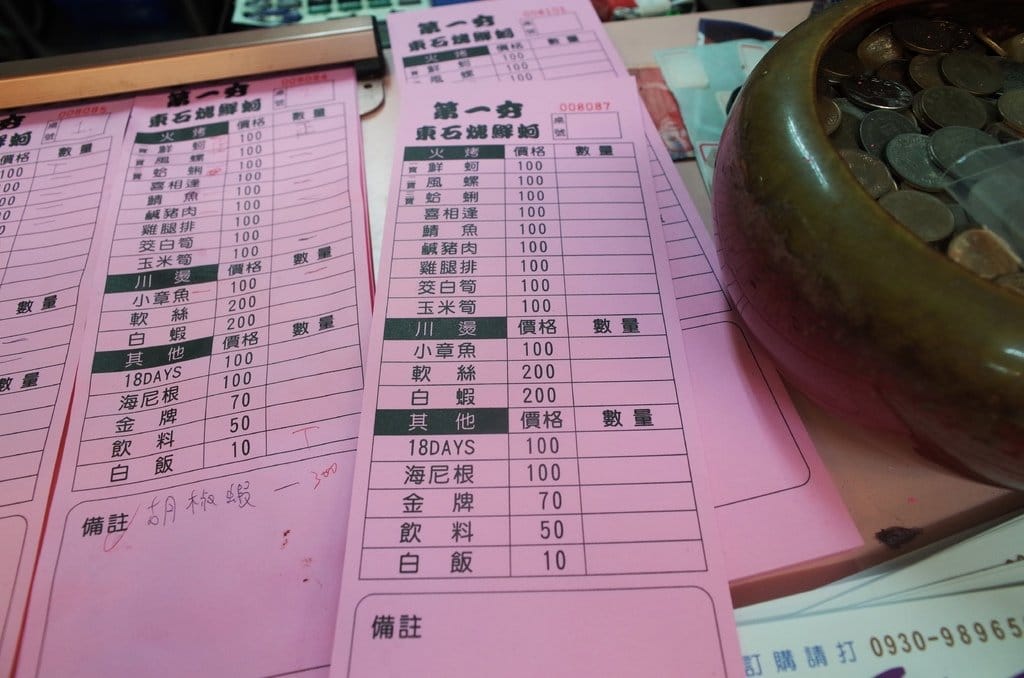 008085
桌號
價格 數量
100
100
數量
數量
第一夯
008084
東石燒鮮蚵
桌號
火烤 價格 數量
寶 鮮蚵 100
寶 風螺 100
寶 蛤蜊 100
喜相逢 100
鯖魚 100
鹹豬肉 100
雞腿排 100
筊白筍 100
玉米筍 100
川燙 價格 數量
小章魚 100
軟絲 200
白蝦 200
其他 價格 數量
18DAYS 100
海尼根 100
金牌 70
飲料 50
白飯 10
備註 胡椒蝦 一 300
008101
第一夯
東石燒鮮蚵
桌號
火烤 價格 數量
寶 鮮蚵 100
寶 風螺 100
第一夯
008087
東石燒鮮蚵
桌號
火烤 價格 數量
寶 鮮蚵 100
寶 風螺 100
寶 蛤蜊 100
喜相逢 100
鯖魚 100
鹹豬肉 100
雞腿排 100
筊白筍 100
玉米筍 100
川燙 價格 數量
小章魚 100
軟絲 200
白蝦 200
其他 價格 數量
18DAYS 100
海尼根 100
金牌 70
飲料 50
白飯 10
備註
訂購請打 0930-98965